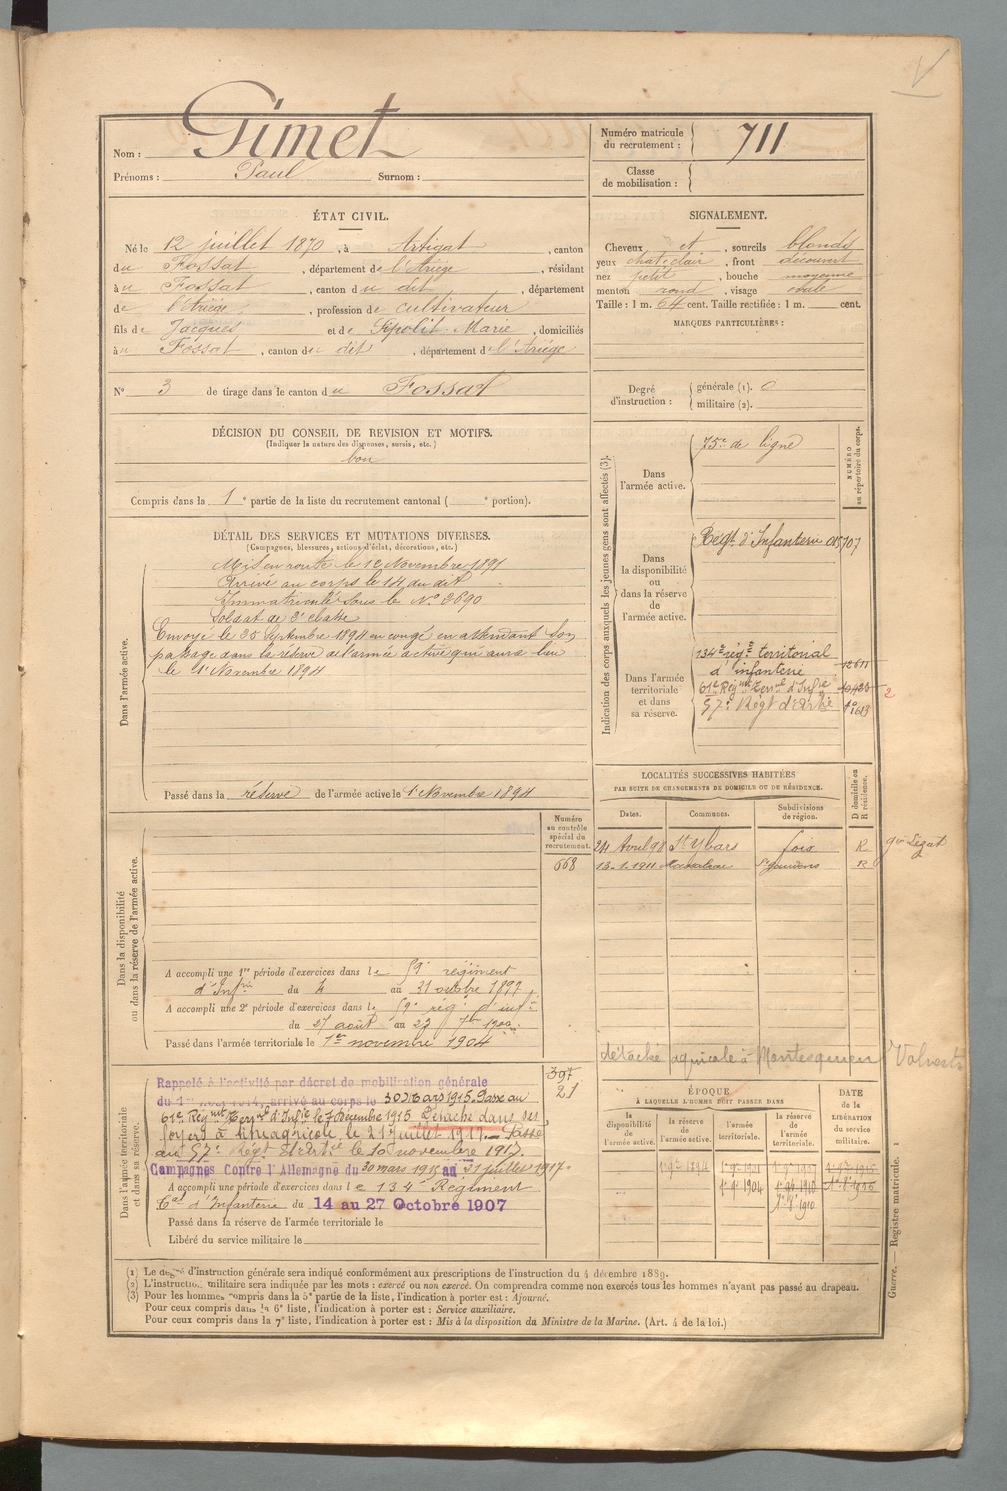 Nom : Gimet
Prénoms : Paul Surnom :
Numéro matricule du recrutement : 711
Classe de mobilisation :
ÉTAT CIVIL.
Né le 12 juillet 1870, à Artigat, canton
du Fossat, département de l'Ariège, résidant
à u Fossat, canton du dit, département
de l'Ariège, profession de cultivateur
fils de Jacques et de Marie, domiciliés
à u Fossat, canton du dit, département de l'Ariège
N° 3 de tirage dans le canton du Fossat
SIGNALEMENT.
Cheveux et, sourcils blonds
yeux chat clair, front découvert
nez petit, bouche moyenne
menton rond, visage ovale
Taille : 1 m. 64 cent. Taille rectifiée : 1 m. cent.
MARQUES PARTICULIÈRES :
Degré d'instruction : générale (1). 0
militaire (2).
DÉCISION DU CONSEIL DE REVISION ET MOTIFS.
(Indiquer la nature des dispenses, sursis, etc.)
bon
Compris dans la 1e partie de la liste du recrutement cantonal ( e portion).
DÉTAIL DES SERVICES ET MUTATIONS DIVERSES.
(Campagnes, blessures, actions d'éclat, décorations, etc.)
Dans l'armée active.
Mis en route le 10 Novembre 1891
Arrivé au corps le 14 du dit
Immatriculé sous le N° 3690
Soldat de 2e classe
Envoyé le 25 Septembre 1894 en congé en attendant son
passage dans la réserve de l'armée active qui aura lieu
le 1r Novembre 1894
Passé dans la réserve de l'armée active le 1r Novembre 1894
Indication des corps auxquels les jeunes gens sont affectés (3).
NUMÉRO au répertoire du corps.
Dans l'armée active.
75e de ligne
Dans la disponibilité ou dans la réserve de l'armée active.
Régt d'Infanterie
Dans l'armée territoriale et dans sa réserve.
134e rég.t territorial
d'infanterie 12611
61e Régmt Terral d'Infie
57e Régt d'Artie
2
LOCALITÉS SUCCESSIVES HABITÉES
PAR SUITE DE CHANGEMENTS DE DOMICILE OU DE RÉSIDENCE.
Dates. Communes. Subdivisions de région. D domicile ou R résidence.
24 Avril 98 St Ybars Foix R
13-1-1911 St Gaudens R
détaché agricole à Montesquieu Volvestre
Numéro au contrôle spécial du recrutement.
668
Dans la disponibilité ou dans la réserve de l'armée active.
A accompli une 1re période d'exercices dans le 59e régiment
d'Infrie du 4 au 31 octobre 1897
A accompli une 2e période d'exercices dans le 59e rég. d'infie
du 27 août au 23 7bre 1900.
Passé dans l'armée territoriale le 1er novembre 1904
Dans l'armée territoriale et dans sa réserve.
397
21
Rappelé à l'activité par décret de mobilisation générale
du 1er Août 1914, arrivé au corps le 30 Mars 1915. Passé au
61e Régmt Terral d'Infie le 7 Décembre 1915 Détaché dans ses
foyers à titre agricole, le 21 juillet 1917. Passé
au 57e Régt d'Artie le 10 novembre 1917.
Campagnes Contre l'Allemagne du 30 mars 1915 au 21 juillet 1917.
A accompli une période d'exercices dans le 134e Régiment
Tal d'Infanterie du 14 au 27 Octobre 1907
Passé dans la réserve de l'armée territoriale le
Libéré du service militaire le
ÉPOQUE
À LAQUELLE L'HOMME DOIT PASSER DANS
DATE de la LIBÉRATION du service militaire.
la disponibilité de l'armée active. la réserve de l'armée active. l'armée territoriale. la réserve de l'armée territoriale.
(1) Le degré d'instruction générale sera indiqué conformément aux prescriptions de l'instruction du 4 décembre 1889.
(2) L'instruction militaire sera indiquée par les mots : exercé ou non exercé. On comprendra comme non exercés tous les hommes n'ayant pas passé au drapeau.
(3) Pour les hommes compris dans la 5e partie de la liste, l'indication à porter est : Ajourné.
Pour ceux compris dans la 6e liste, l'indication à porter est : Service auxiliaire.
Pour ceux compris dans la 7e liste, l'indication à porter est : Mis à la disposition du Ministre de la Marine. (Art. 4 de la loi.)
Guerre. — Registre matricule. 1